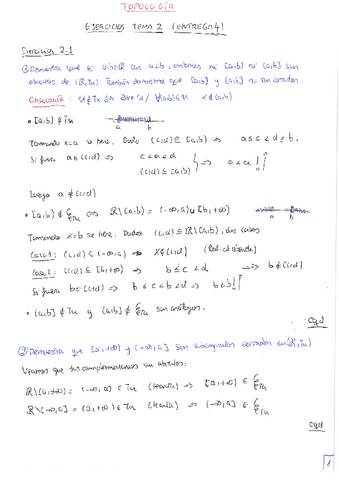 TOPOLOGÍA
EJERCICIOS TEMA 2 (ENTREGA 4)
Ejercicios 2.1
① Demuestra que si a,b∈ℝ con a<b, entonces ni [a,b) ni (a,b] son
abiertos de (ℝ,Tu). También demuestra que [a,b) y (a,b] no son cerrados.
• [a,b) ∉ Tu
a b
Tomamos x=a se tiene. Dado (c,d) ⊆ [a,b) ⇒ a ≤ c < d ≤ b.
Si fuera a∈(c,d) ⇒ c<a<d
(c,d) ⊆ [a,b) ⇒ c<a!
Luego a ∉ (c,d)
• [a,b) ∉ C_Tu ⟺ ℝ\[a,b) = (-∞,a) ∪ [b,+∞)
a b
Tomamos x=b se tiene. Dados (c,d) ⊆ ℝ\[a,b), dos casos
Caso 1: (c,d) ⊆ (-∞,a) ⇒ x∉(c,d)
Caso 2: (c,d) ⊆ [b,+∞) ⇒ b ≤ c < d ⇒ b ∉ (c,d)
Si fuera b∈(c,d) ⇒ b ≤ c < b < d ⇒ b<b!
• (a,b] ∉ Tu y (a,b] ∉ C_Tu son análogos.
Cqd
② Demuestra que [a,+∞) y (-∞,a] son subconjuntos cerrados en (ℝ,Tu)
Veamos que sus complementarios son abiertos:
ℝ\[a,+∞) = (-∞,a) ∈ Tu (teoría) ⇒ [a,+∞) ∈ C_Tu
ℝ\(-∞,a] = (a,+∞) ∈ Tu (teoría) ⇒ (-∞,a] ∈ C_Tu
Cqd
1